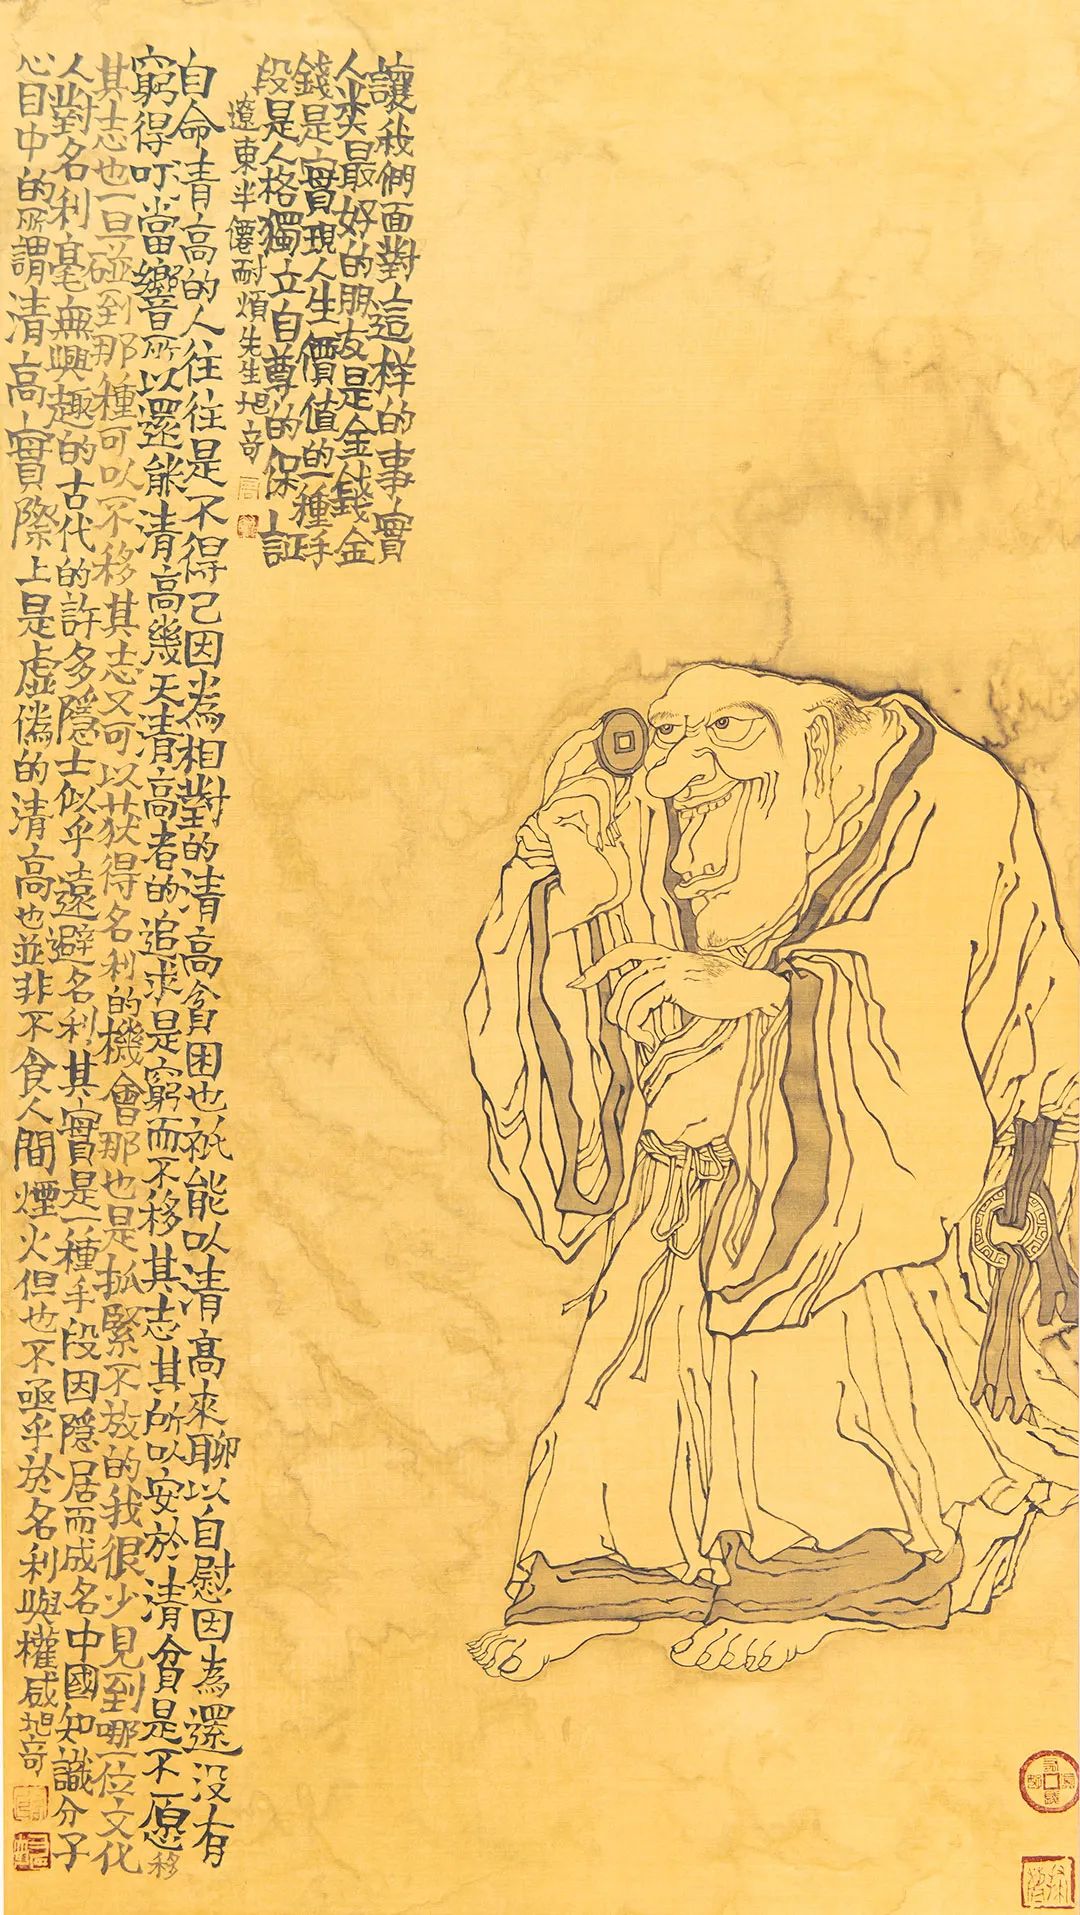 讓我們面對這样的事實
人类最好的朋友是金錢金
錢是實現人生價值的一種手
段是人格獨立自尊的保証
遼東半僊耐煩先生旭奇
自命清高的人往往是不得已因為相對的清高貧困也祇能以清高來聊以自慰因為還没有
窮得叮當響所以還能清高幾天清高者的追求是窮而不移其志其所以安於清貧是不愿移
其志也一旦碰到那種可以不移其志又可以获得名利的機會那也是抓緊不放的我很少見到哪一位文化
人對名利毫無興趣的古代的許多隱士似乎遠避名利其實是一種手段因隱居而成名中國知識分子
心目中的所謂清高實際上是虚僞的清高也並非不食人間煙火但也不亟乎於名利與權威旭奇